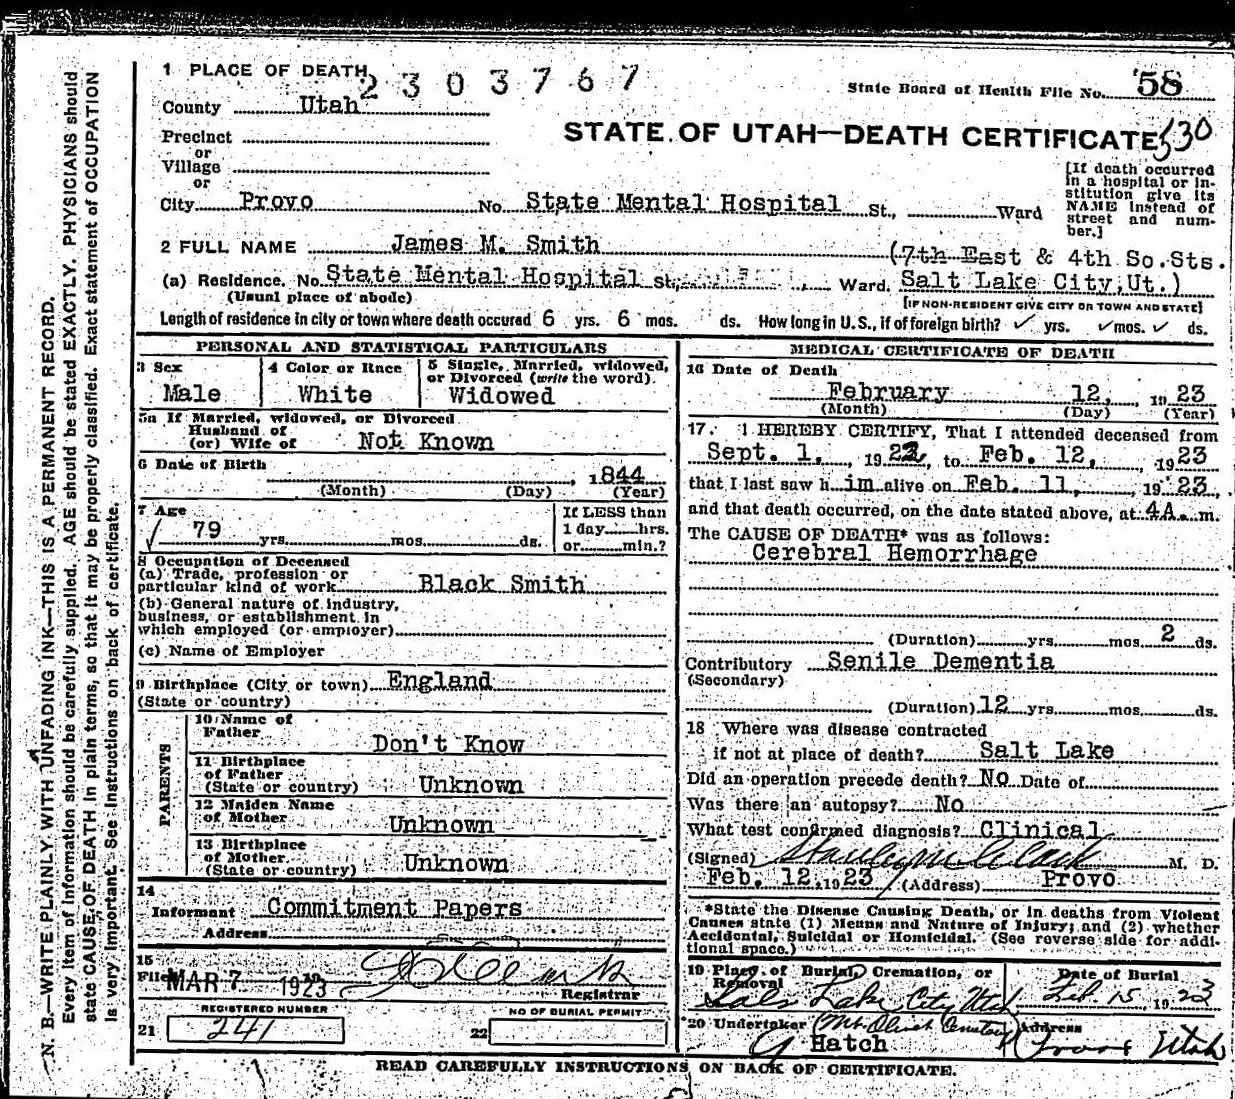 1 PLACE OF DEATH
2303767
State Board of Health File No. 58
County Utah
STATE OF UTAH—DEATH CERTIFICATE
530
Precinct
or
Village
or
City Provo No. State Mental Hospital St., Ward
[If death occurred
in a hospital or in-
stitution give its
NAME instead of
street and num-
ber.]
2 FULL NAME James M. Smith
(7th East & 4th So. Sts.
(a) Residence. No. State Mental Hospital St., Ward. Salt Lake City, Ut.)
(Usual place of abode) [IF NON-RESIDENT GIVE CITY OR TOWN AND STATE]
Length of residence in city or town where death occured 6 yrs. 6 mos. ds. How long in U. S., if of foreign birth? ✓ yrs. ✓ mos. ✓ ds.
PERSONAL AND STATISTICAL PARTICULARS
3 Sex
Male
4 Color or Race
White
5 Single, Married, widowed,
or Divorced (write the word).
Widowed
5a If Married, widowed, or Divorced
Husband of
(or) Wife of Not Known
6 Date of Birth
, 1844
(Month) (Day) (Year)
7 Age
✓ 79 yrs. mos. ds.
If LESS than
1 day hrs.
or min.?
8 Occupation of Deceased
(a) Trade, profession or
particular kind of work Black Smith
(b) General nature of industry,
business, or establishment in
which employed (or employer)
(c) Name of Employer
9 Birthplace (City or town) England
(State or country)
PARENTS
10 Name of
Father
Don't Know
11 Birthplace
of Father
(State or country) Unknown
12 Maiden Name
of Mother Unknown
13 Birthplace
of Mother
(State or country) Unknown
14
Informant Commitment Papers
Address
15
Filed MAR 7 1923
Registrar
REGISTERED NUMBER
21 241
NO OF BURIAL PERMIT
22
MEDICAL CERTIFICATE OF DEATH
16 Date of Death
February 12, 1923
(Month) (Day) (Year)
17. I HEREBY CERTIFY, That I attended deceased from
Sept. 1, 1922, to Feb. 12, 1923
that I last saw him alive on Feb. 11, 1923,
and that death occurred, on the date stated above, at 4A. m.
The CAUSE OF DEATH* was as follows:
Cerebral Hemorrhage
(Duration) yrs. mos. 2 ds.
Contributory Senile Dementia
(Secondary)
(Duration) 12 yrs. mos. ds.
18 Where was disease contracted
if not at place of death? Salt Lake
Did an operation precede death? No Date of
Was there an autopsy? No
What test confirmed diagnosis? Clinical
(Signed) M. D.
Feb. 12, 1923 (Address) Provo
*State the Disease Causing Death, or in deaths from Violent
Causes state (1) Means and Nature of Injury; and (2) whether
Accidental, Suicidal or Homicidal. (See reverse side for addi-
tional space.)
19 Place of Burial, Cremation, or
Removal
Salt Lake City Utah
Date of Burial
Feb. 15 1923
20 Undertaker (Mt. Olivet Cemetery)
Hatch
Address
Provo Utah
READ CAREFULLY INSTRUCTIONS ON BACK OF CERTIFICATE.
N. B.—WRITE PLAINLY WITH UNFADING INK—THIS IS A PERMANENT RECORD.
Every item of information should be carefully supplied. AGE should be stated EXACTLY. PHYSICIANS should
state CAUSE OF DEATH in plain terms, so that it may be properly classified. Exact statement of OCCUPATION
is very important. See instructions on back of certificate.